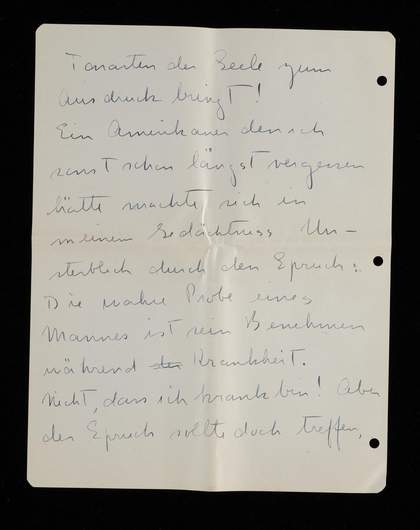 Tonarten der Seele zum
Ausdruck bringt!
Ein Amerikaner den ich
sonst schon längst vergessen
hätte machte sich in
meinem Gedächtniss Un-
sterblich durch den Spruch:
Die wahre Probe eines
Mannes ist sein Benehmen
während der Krankheit.
Nicht, dass ich krank bin! Aber
der Spruch sollte doch treffen,